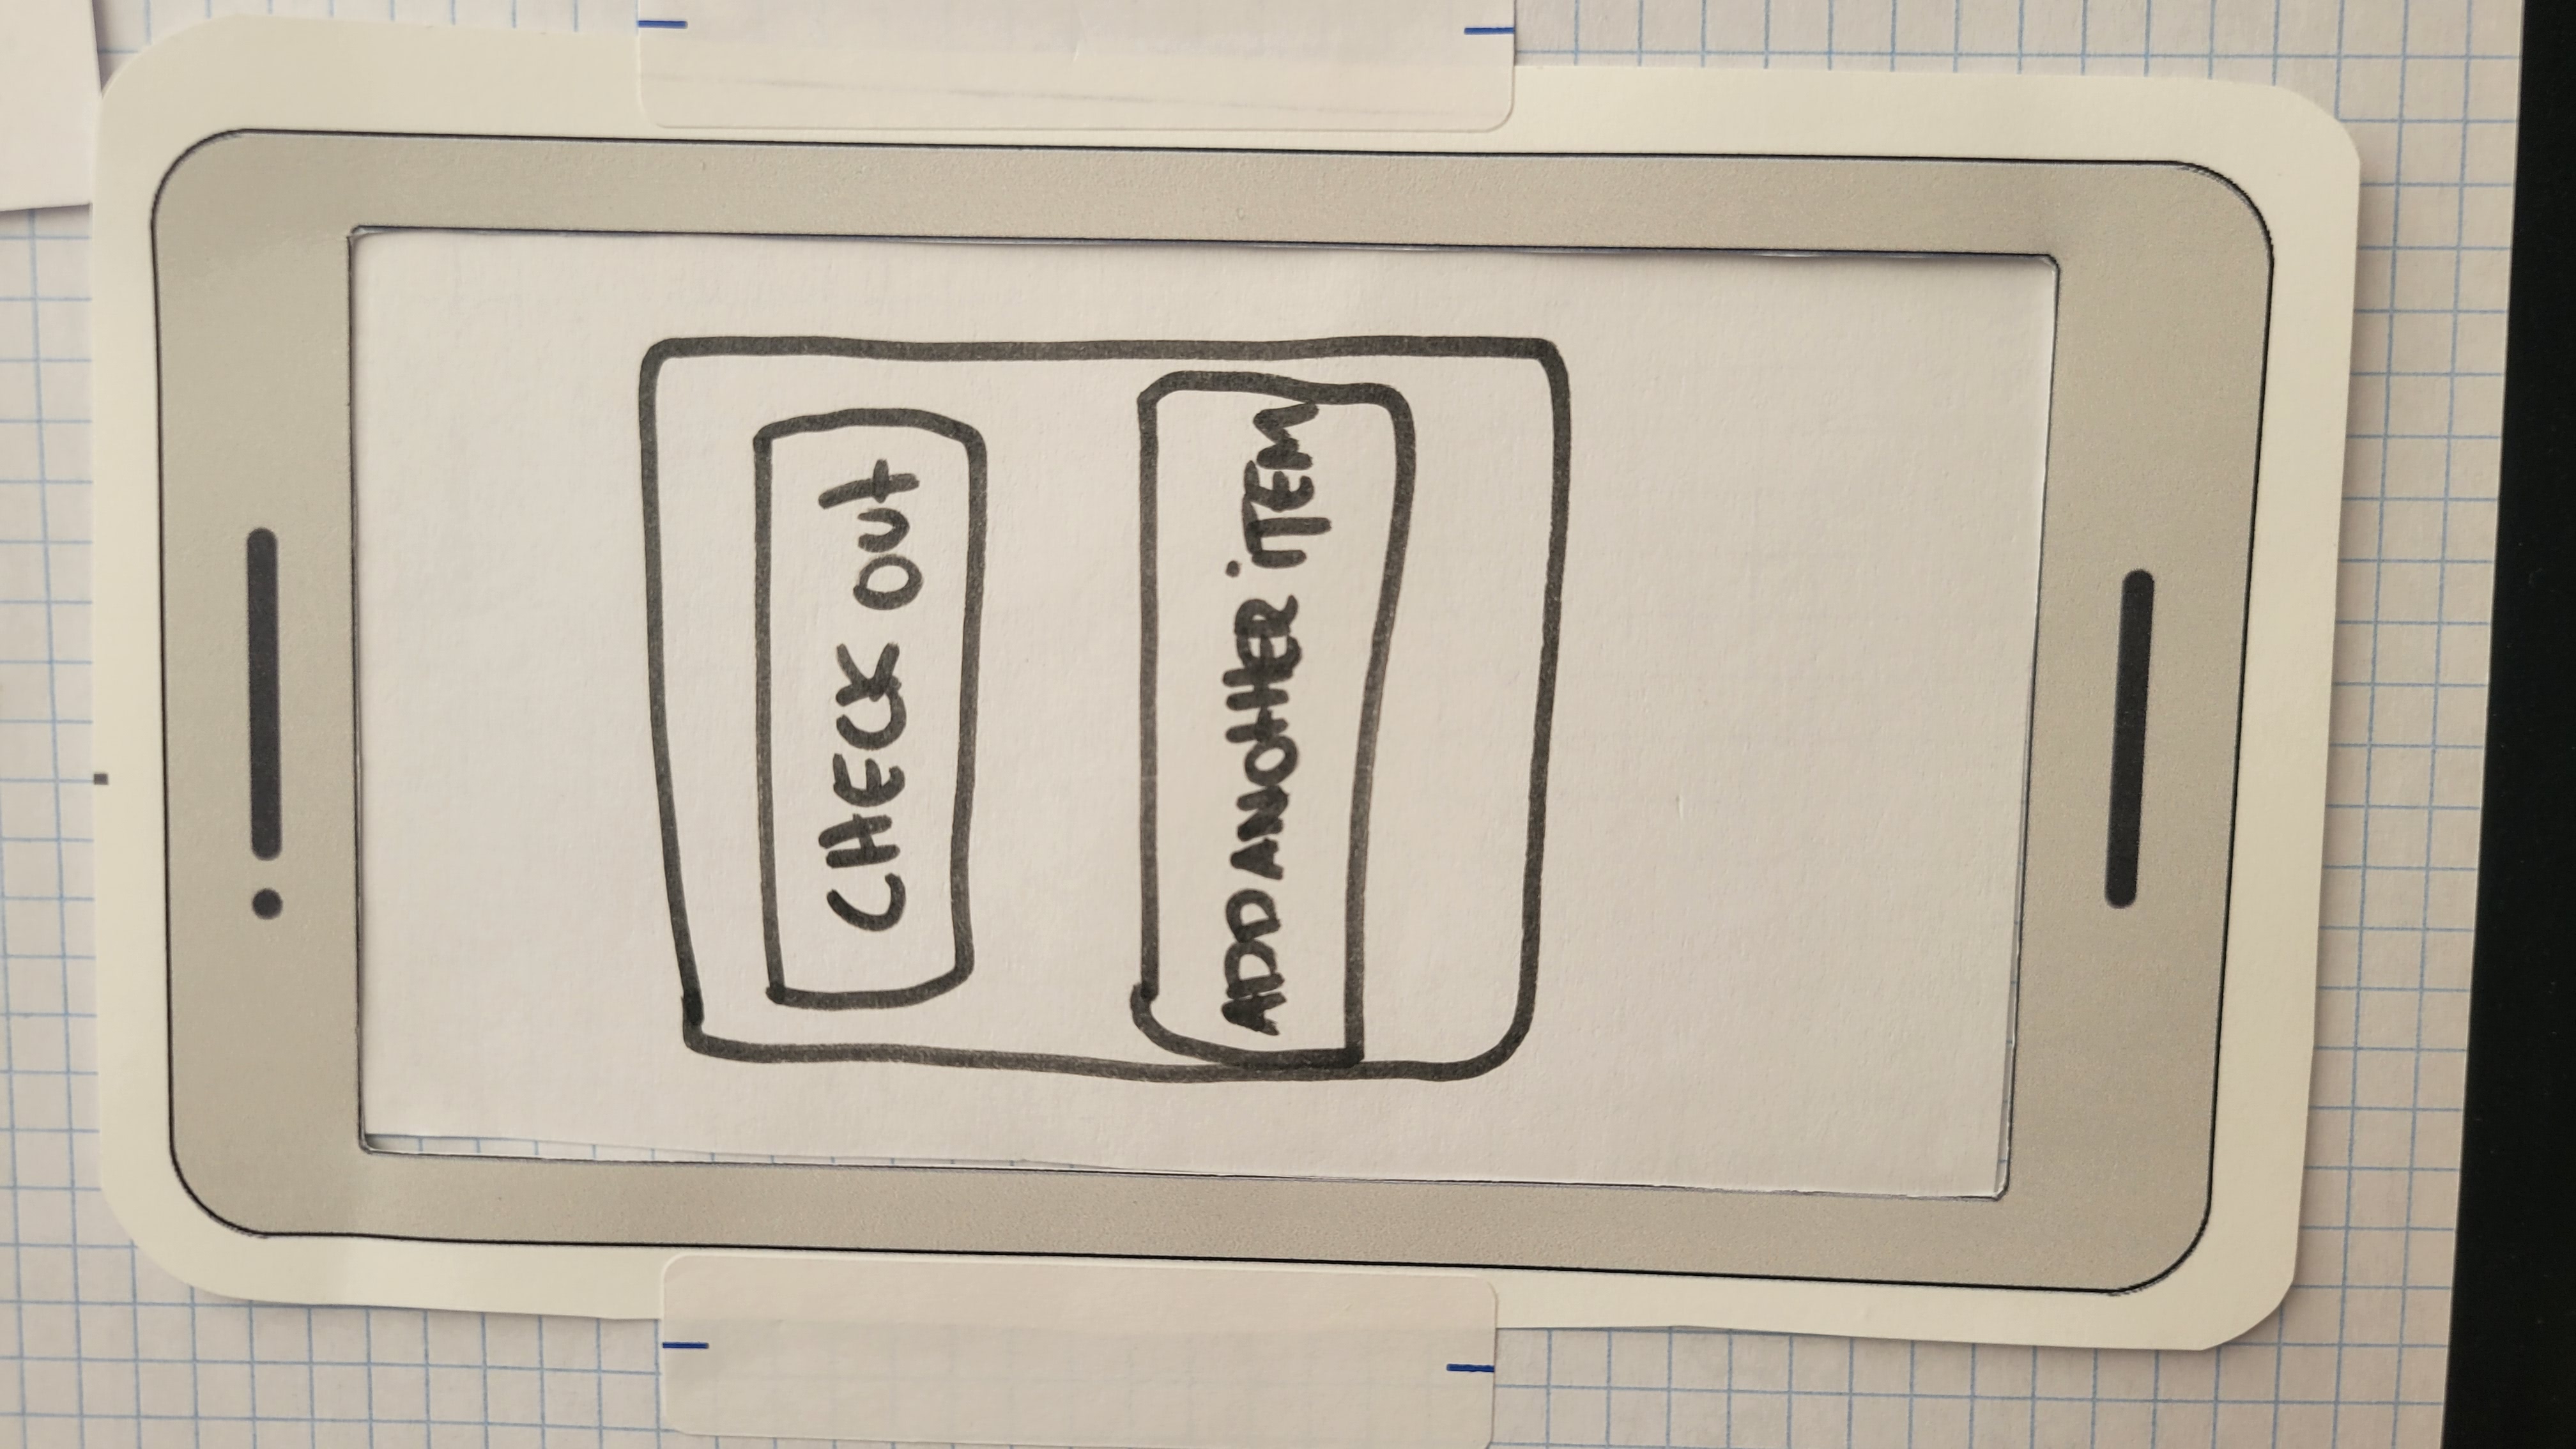 CHECK OUt
ADD ANOtHER iTEM